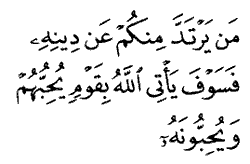 مَن يَرۡتَدَّ مِنكُمۡ عَن دِينِهِۦ
فَسَوۡفَ يَأۡتِي ٱللَّهُ بِقَوۡمٖ يُحِبُّهُمۡ
وَيُحِبُّونَهُۥٓ